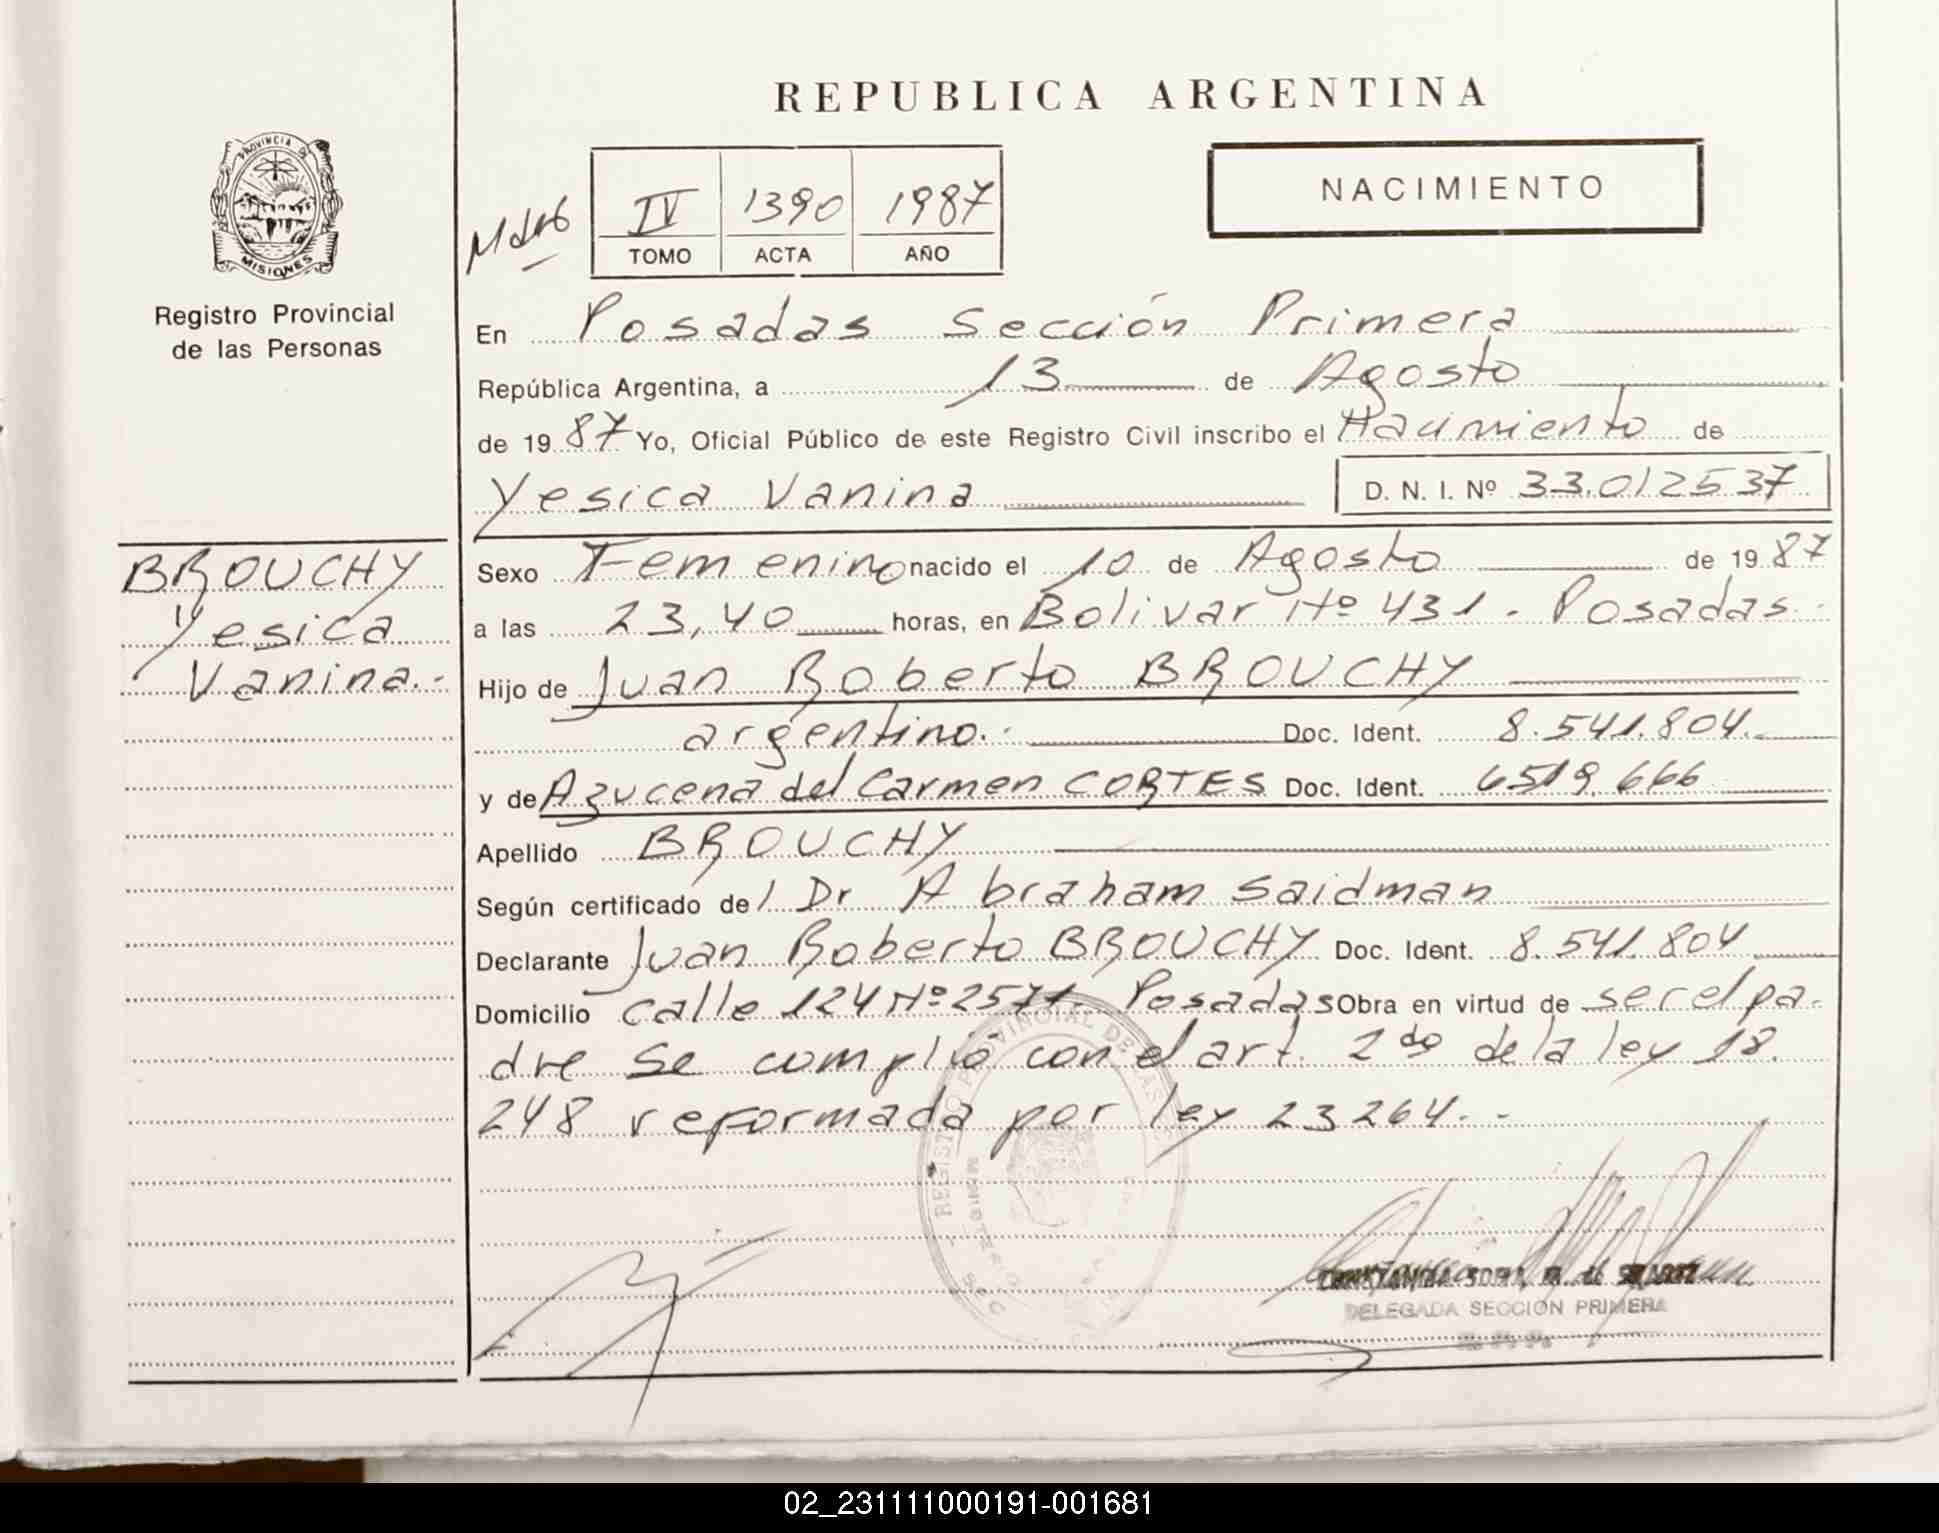 REPUBLICA ARGENTINA
PROVINCIA DE
MISIONES
Registro Provincial
de las Personas
NACIMIENTO
IV 1390 1987
TOMO ACTA AÑO
En Posadas Sección Primera
República Argentina, a 13 de Agosto
de 1987 Yo, Oficial Público de este Registro Civil inscribo el Nacimiento de
Yesica Vanina D. N. I. Nº 33.012537
BROUCHY
Yesica
Vanina.-
Sexo Femenino nacido el 10 de Agosto de 1987
a las 23,40 horas, en Bolivar Nº 431. Posadas.
Hijo de Juan Roberto BROUCHY
argentino.- Doc. Ident. 8.541.804.
y de Azucena del Carmen CORTES Doc. Ident. 6519.666
Apellido BROUCHY
Según certificado del Dr Abraham Saidman
Declarante Juan Roberto BROUCHY Doc. Ident. 8.541.804
Domicilio calle 124 Nº 2571. Posadas Obra en virtud de ser el pa-
dre Se cumplió con el art. 2do de la ley 18.
248 reformada por ley 23264.-
REGISTRO PROVINCIAL DE LAS
DELEGADA SECCION PRIMERA
02_231111000191-001681